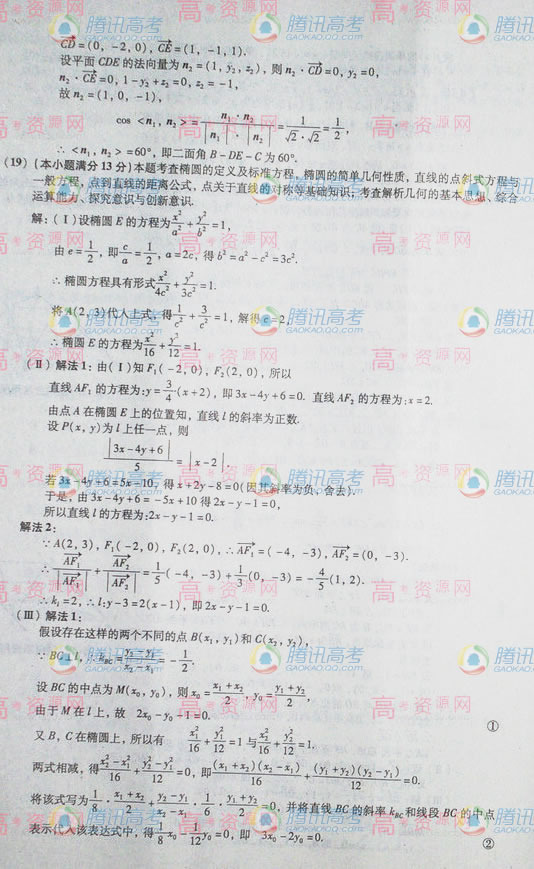 CD=(0, -2, 0), CE=(1, -1, 1).
设平面 CDE 的法向量为 n₂=(1, y₂, z₂), 则 n₂·CD=0, y₂=0,
n₂·CE=0, 1-y₂+z₂=0, z₂=-1,
故 n₂=(1, 0, -1),
cos <n₁, n₂>= n₁·n₂/(|n₁|·|n₂|) = 1/(√2·√2) = 1/2,
∴ <n₁, n₂>=60°, 即二面角 B-DE-C 为 60°.
(19) (本小题满分 13 分)本题考查椭圆的定义及标准方程, 椭圆的简单几何性质, 直线的点斜式方程与
一般方程, 点到直线的距离公式, 点关于直线的对称等基础知识; 考查解析几何的基本思想、综合
运算能力、探究意识与创新意识.
解: (Ⅰ)设椭圆 E 的方程为 x²/a²+y²/b²=1,
由 e=1/2, 即 c/a=1/2, a=2c, 得 b²=a²-c²=3c².
∴ 椭圆方程具有形式 x²/4c²+y²/3c²=1.
将 A(2, 3)代入上式, 得 1/c²+3/c²=1, 解得 c=2,
∴ 椭圆 E 的方程为 x²/16+y²/12=1.
(Ⅱ) 解法 1: 由(Ⅰ)知 F₁(-2, 0), F₂(2, 0), 所以
直线 AF₁ 的方程为: y=3/4(x+2), 即 3x-4y+6=0. 直线 AF₂ 的方程为: x=2.
由点 A 在椭圆 E 上的位置知, 直线 l 的斜率为正数.
设 P(x, y)为 l 上任一点, 则
|3x-4y+6|/5=|x-2|.
若 3x-4y+6=5x-10, 得 x+2y-8=0(因其斜率为负, 舍去).
于是, 由 3x-4y+6=-5x+10 得 2x-y-1=0,
所以直线 l 的方程为: 2x-y-1=0.
解法 2:
∵ A(2, 3), F₁(-2, 0), F₂(2, 0), ∴ AF₁=(-4, -3), AF₂=(0, -3).
∴ AF₁/|AF₁|+AF₂/|AF₂|=1/5(-4, -3)+1/3(0, -3)=-4/5(1, 2).
∴ kₗ=2, ∴ l: y-3=2(x-1), 即 2x-y-1=0.
(Ⅲ) 解法 1:
假设存在这样的两个不同的点 B(x₁, y₁)和 C(x₂, y₂),
∵ BC⊥l, ∴ k_BC=(y₂-y₁)/(x₂-x₁)=-1/2.
设 BC 的中点为 M(x₀, y₀), 则 x₀=(x₁+x₂)/2, y₀=(y₁+y₂)/2,
由于 M 在 l 上, 故 2x₀-y₀-1=0. ①
又 B, C 在椭圆上, 所以有 x₁²/16+y₁²/12=1 与 x₂²/16+y₂²/12=1,
两式相减, 得 (x₂²-x₁²)/16+(y₂²-y₁²)/12=0, 即 (x₁+x₂)(x₂-x₁)/16+(y₁+y₂)(y₂-y₁)/12=0.
将该式写为 1/8·(x₁+x₂)/2+(y₂-y₁)/(x₂-x₁)·1/6·(y₁+y₂)/2=0, 并将直线 BC 的斜率 k_BC 和线段 BC 的中点
表示代入该表达式中, 得 1/8x₀-1/12y₀=0, 即 3x₀-2y₀=0. ②